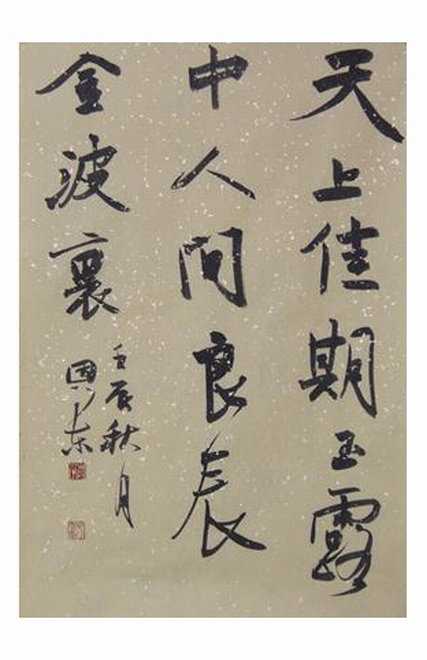 天上佳期玉露
中人间良辰
金波裏
壬辰秋月
国东